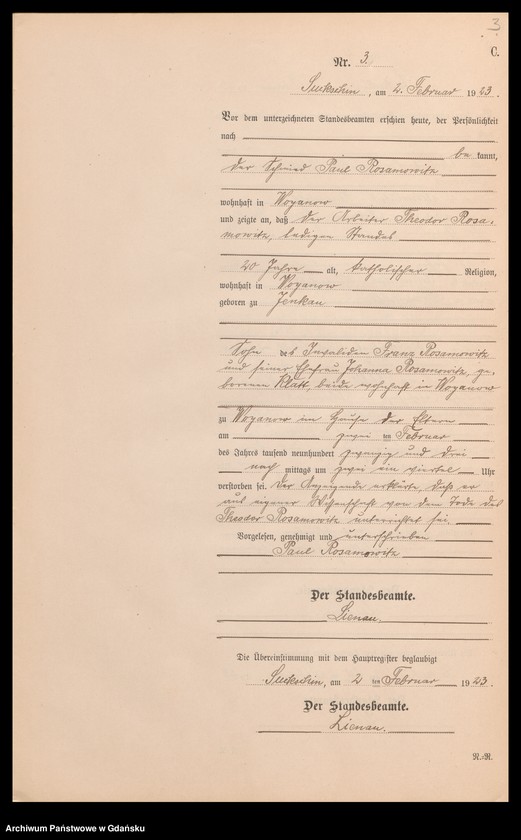 3
C.
Nr. 3.
Suckschin, am 2. Februar 1923.
Vor dem unterzeichneten Standesbeamten erschien heute, der Persönlichkeit
nach
be kannt,
der Schmied Paul Rosamowitz
wohnhaft in Woyanow
und zeigte an, daß der Arbeiter Theodor Rosa-
mowitz, ledigen Standes
20 Jahre alt, katholischer Religion,
wohnhaft in Woyanow
geboren zu Jenkau
Sohn des Invaliden Franz Rosamowitz
und seiner Ehefrau Johanna Rosamowitz ge-
borenen Klatt, beide wohnhaft in Woyanow
zu Woyanow im Hause der Eltern
am zwei ten Februar
des Jahres tausend neunhundert zwanzig und drei
nach mittags um zwei ein viertel Uhr
verstorben sei. Der Anzeigende erklärte, daß er
aus eigener Wissenschaft von dem Tode des
Theodor Rosamowitz unterrichtet sei.
Vorgelesen, genehmigt und unterschrieben
Paul Rosamowitz
Der Standesbeamte.
Lienau.
Die Übereinstimmung mit dem Hauptregister beglaubigt
Suckschin, am 2 ten Februar 1923.
Der Standesbeamte.
Lienau.
N.-R.
Archiwum Państwowe w Gdańsku